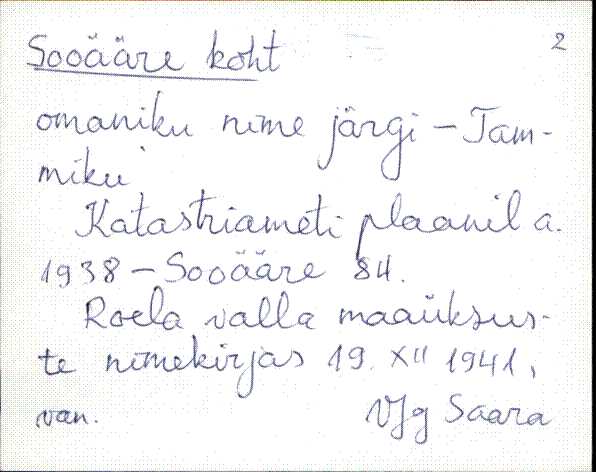 2
Sooääre koht
omaniku nime järgi – Tam-
miku
Katastriameti plaanil a.
1938 – Sooääre 84.
Roela valla maaüksus-
te nimekirjas 19. XII 1941,
van. VJg Saara